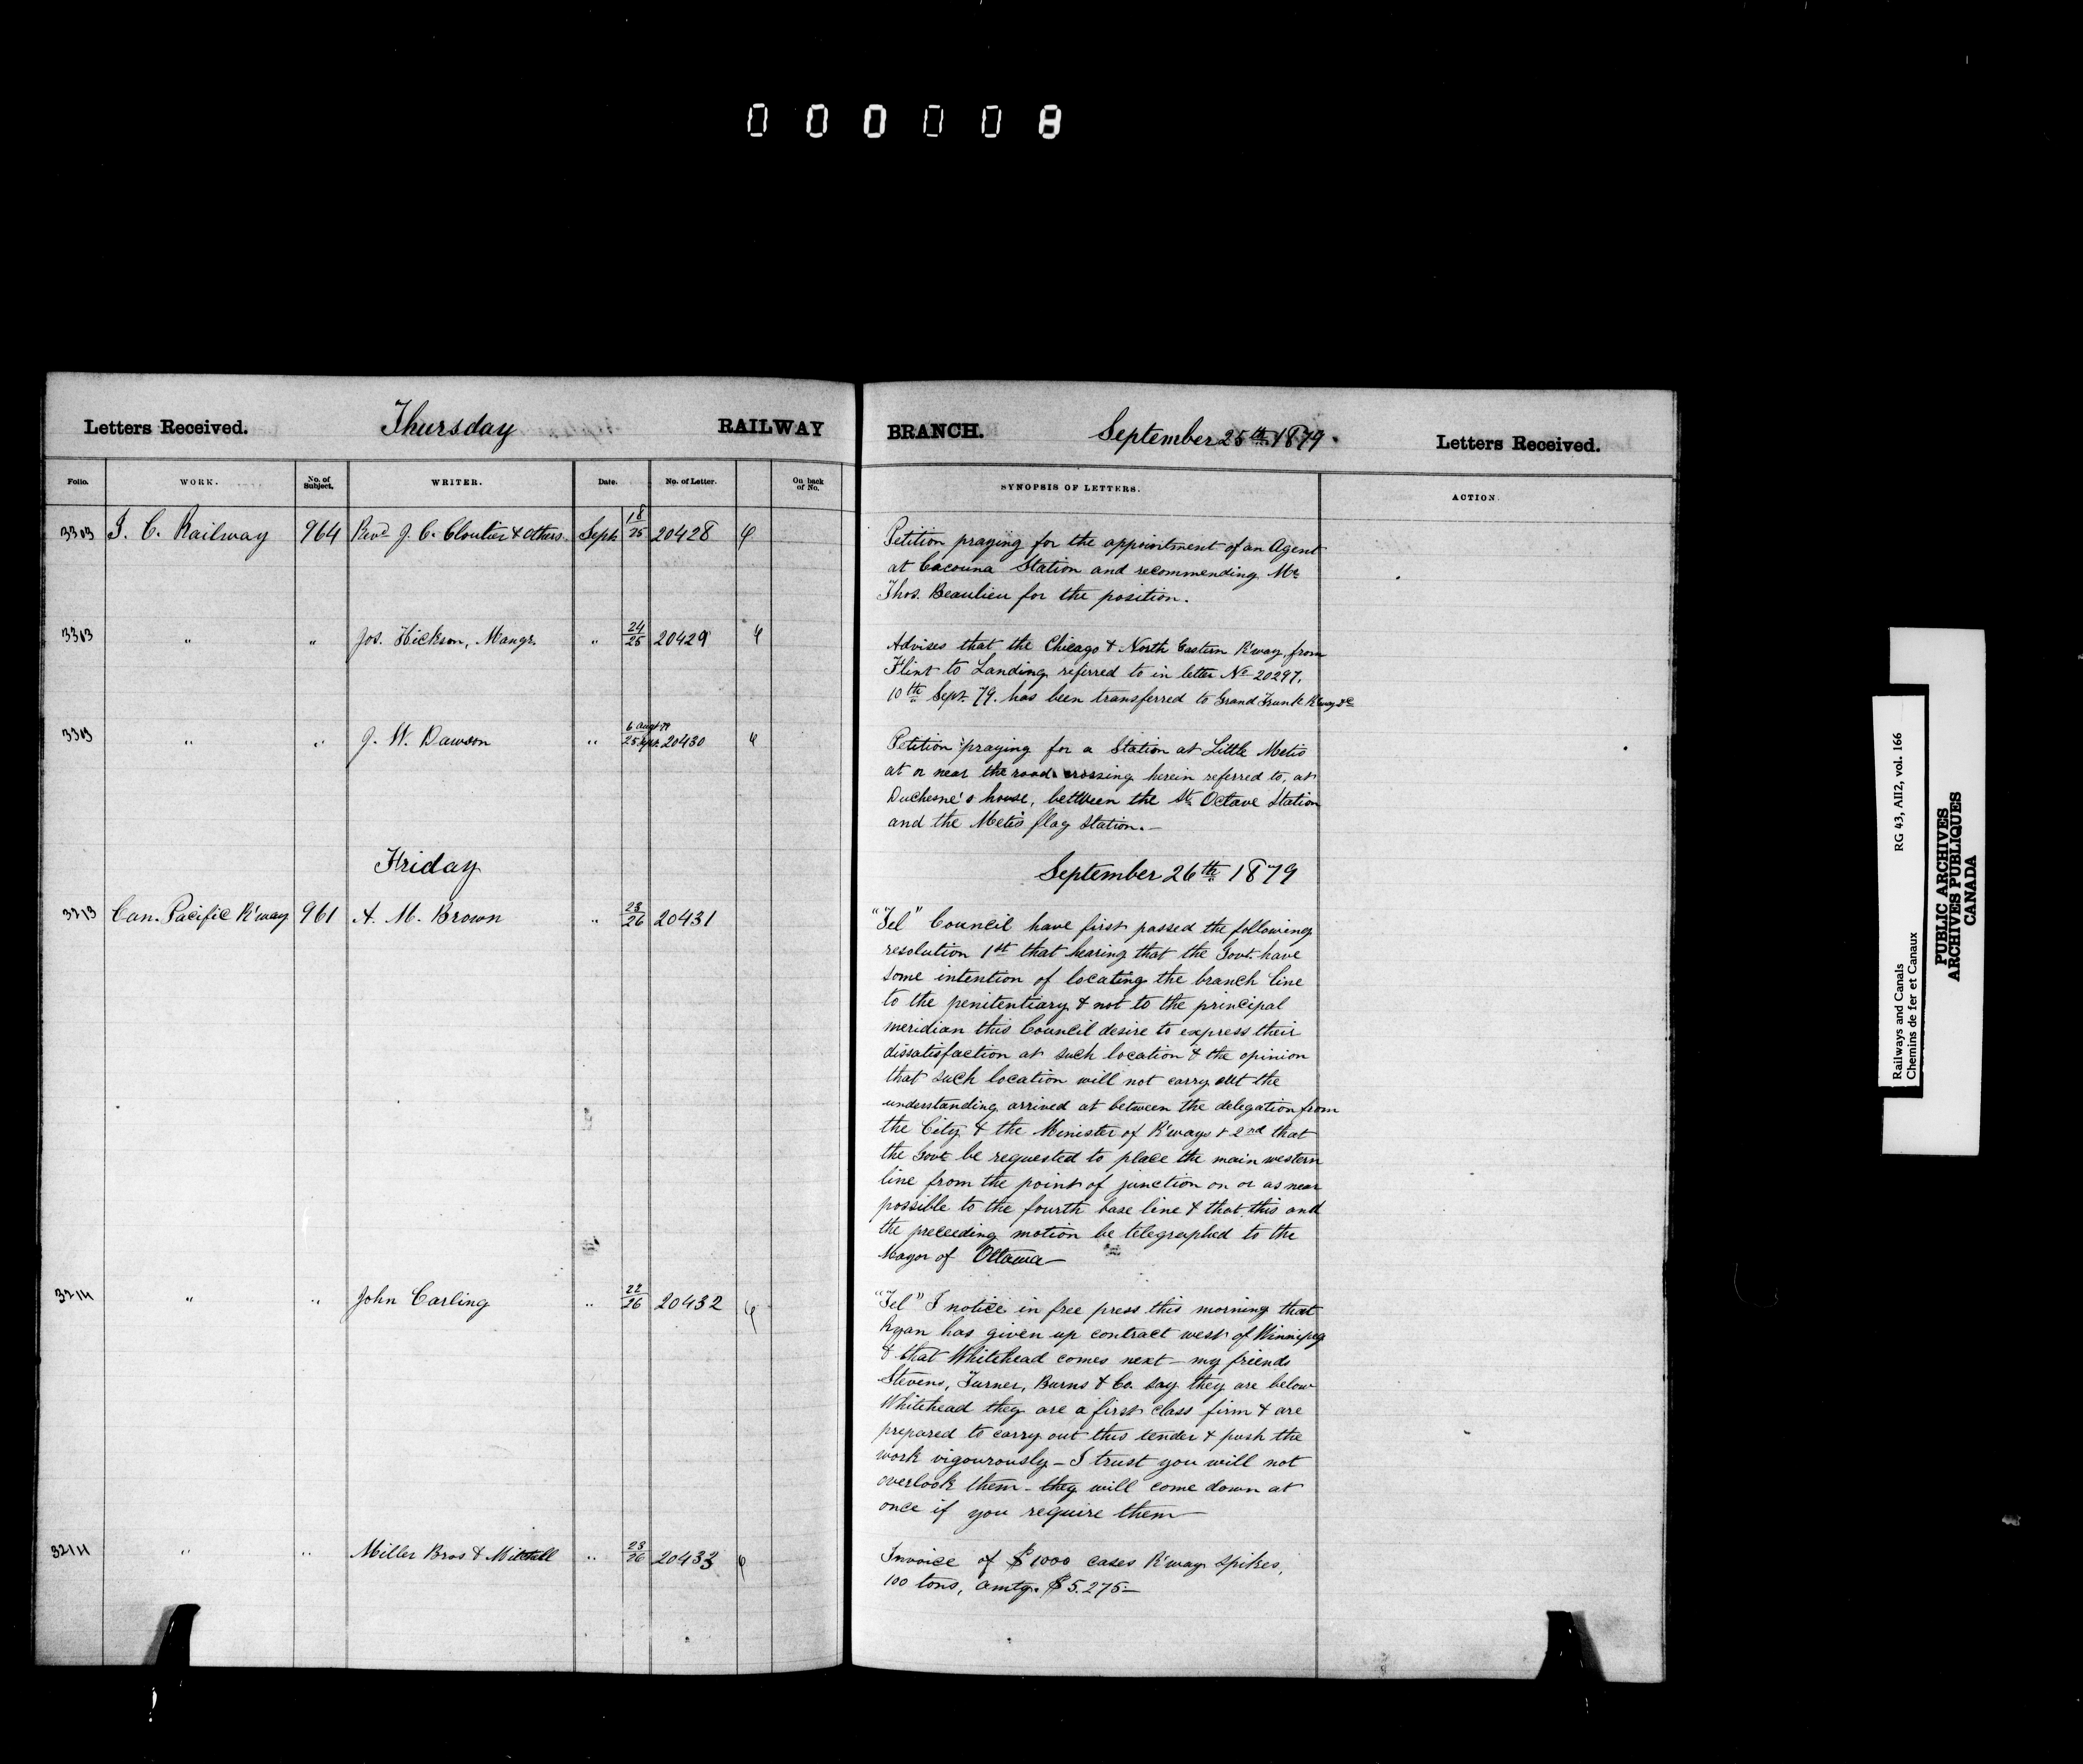 000008
Letters Received. Thursday RAILWAY BRANCH. September 25th 1879. Letters Received.
Folio. WORK. No. of Subject. WRITER. Date. No. of Letter. On back of No. SYNOPSIS OF LETTERS. ACTION.
3303 I. C. Railway 964 Revd J. C. Cloutier & others. Sept 18/25 20428
Petition praying for the appointment of an Agent
at Cacouna Station and recommending Mr
Thos. Beaulieu for the position.
3313 " " Jos. Hickson, Mangr. " 24/25 20429
Advises that the Chicago & North Eastern R'way from
Flint to Landing referred to in letter No 20297,
10th Sept. 79. has been transferred to Grand Trunk R'way &c
3303 " " J. W. Dawson " 6 Augt 79/25 Sept. 20430
Petition praying for a Station at Little Metis
at or near the road crossing herein referred to, at
Duchesne's house, between the St. Octave Station
and the Metis flag station.—
Friday September 26th 1879
3213 Can. Pacific R'way 961 A. M. Brown " 23/26 20431
"Tel" Council have first passed the following
resolution 1st that hearing that the Govt. have
some intention of locating the branch line
to the penitentiary & not to the principal
meridian this Council desire to express their
dissatisfaction at such location & the opinion
that such location will not carry out the
understanding arrived at between the delegation from
the City & the Minister of R'ways & 2nd that
the Govt be requested to place the main western
line from the point of junction on or as near
possible to the fourth base line & that this and
the preceeding motion be telegraphed to the
Mayor of Ottawa—
3214 " " John Carling " 22/26 20432
"Tel" I notice in free press this morning that
Ryan has given up contract west of Winnipeg
& that Whitehead comes next – my friends
Stevens, Turner, Burns & Co. say they are below
Whitehead they are a first class firm & are
prepared to carry out this tender & push the
work vigourously – I trust you will not
overlook them – they will come down at
once if you require them—
3214 " " Miller Bros & Mitchell " 23/26 20433
Invoice of $1000 cases R'way spikes,
100 tons, amtg. $5.275—
Railways and Canals RG 43, AII2, vol. 166
Chemins de fer et Canaux
PUBLIC ARCHIVES
ARCHIVES PUBLIQUES
CANADA